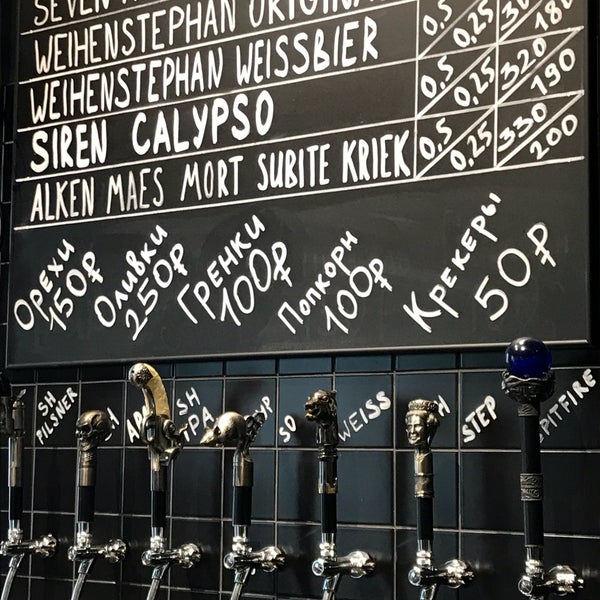 SEVEN
WEIHENSTEPHAN ORIGINAL 0,5 0,25
WEIHENSTEPHAN WEISSBIER 0,5 0,25 320 180
SIREN CALYPSO 0,5 0,25 320 190
ALKEN MAES MORT SUBITE KRIEK 0,5 0,25 330 200
Орехи 150₽
Оливки 250₽
Гренки 100₽
Попкорн 100₽
Крекеры 50₽
SH PILSNER
SH
SO
WEISS
STEP
SPITFIRE